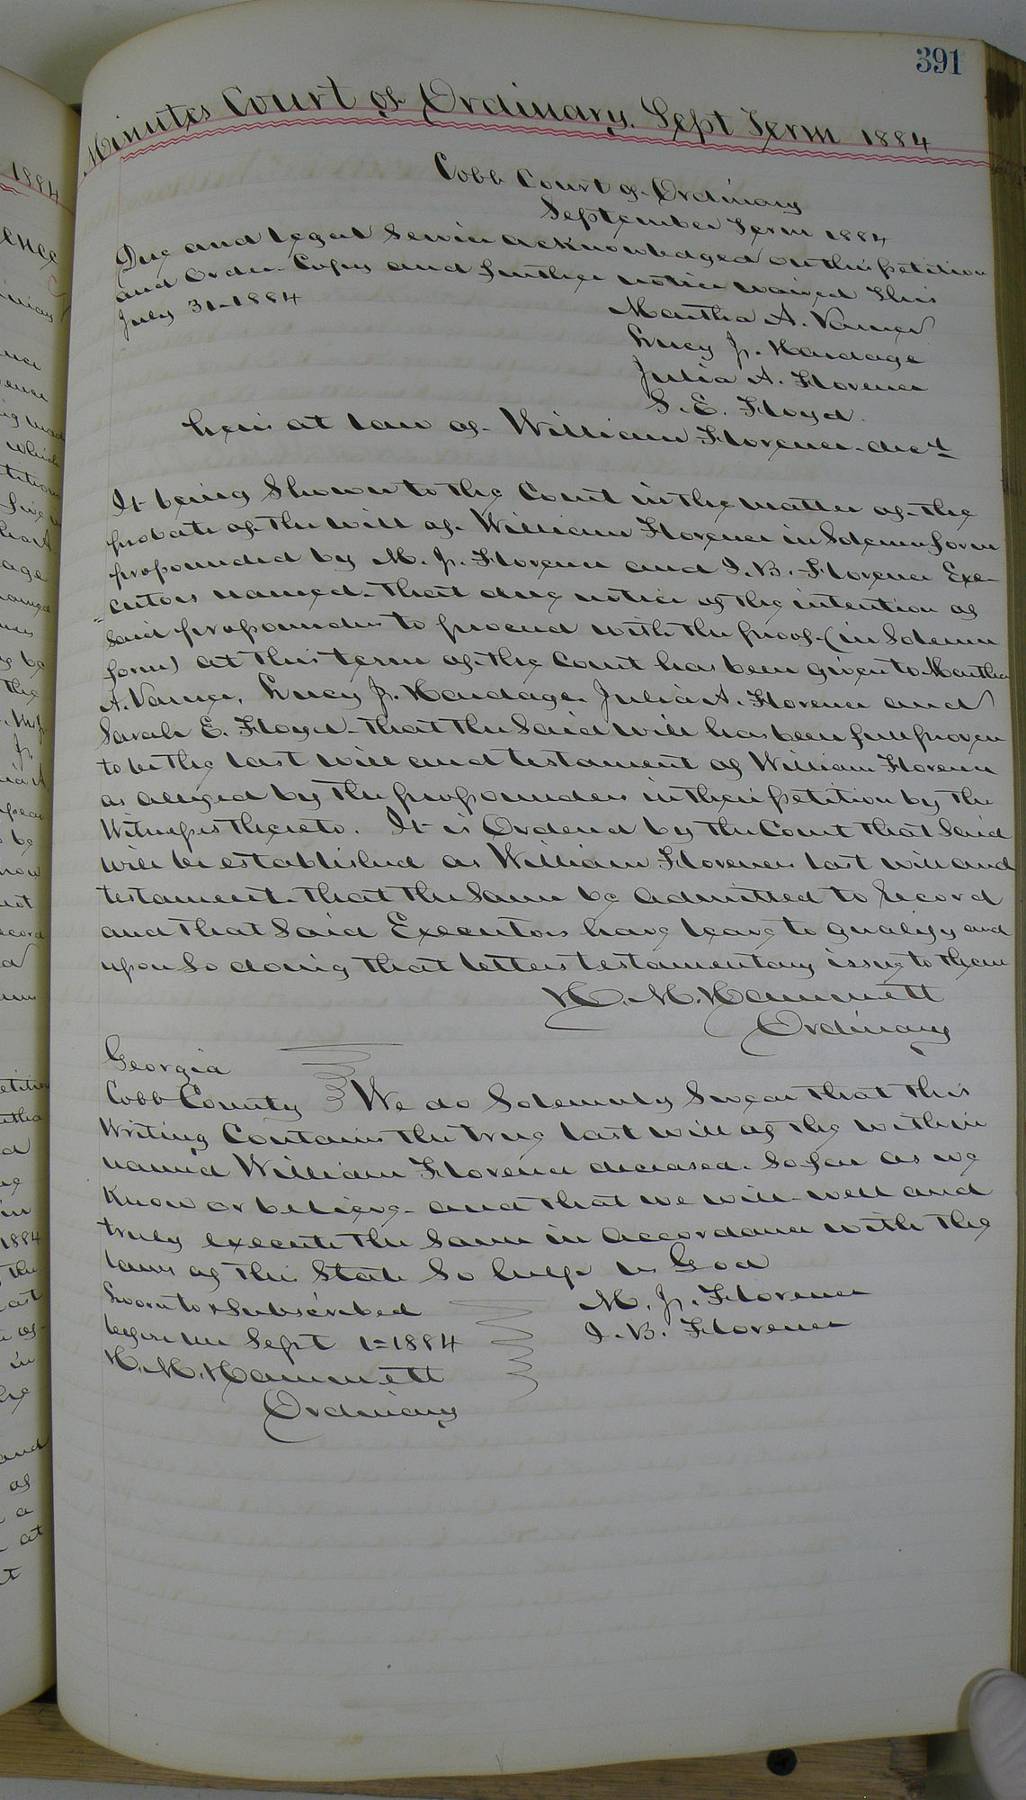 391
Minutes Court of Ordinary. Sept Term 1884
Cobb Court of Ordinary
September Term 1884
Due and legal Service acknowledged on this petition
and order. Copy and further notice waived This
July 31-1884
Martha A. Varner
Lucy J. Hardage
Julia A. Florence
S. E. Floyd.
heirs at law of William Florence decd
It being Shown to the Court in the matter of the
probate of the will of William Florence in Solemn form
propounded by M. J. Florence and I. B. Florence Exe-
-cutors named. that due notice of the intention of
said propounders to proceed with the proof (in Solemn
form) at this term of the Court has been given to Martha
A. Varner, Lucy J. Hardage. Julia A. Florence and
Sarah E. Floyd. that the Said will has been full proven
to be the last will and testament of William Florence
as alleged by the propounders in their petition by the
Witnesses thereto. It is Ordered by the Court that Said
will be established as William Florences last will and
testament. that the Same be admitted to record
and that Said Executors have leave to qualify and
upon So doing that letters testamentary issue to them
H. M. Hammett
Ordinary
Georgia
Cobb County We do Solemnly Swear that this
Writing Contains the true last will of the within
named William Florence deceased. So far as we
know or believe. and that we will well and
truly execute the Same in accordance with the
laws of this State So help us God
Sworn to & Subscribed M. J. Florence
before me Sept 1=1884 I. B. Florence
H. M. Hammett
Ordinary